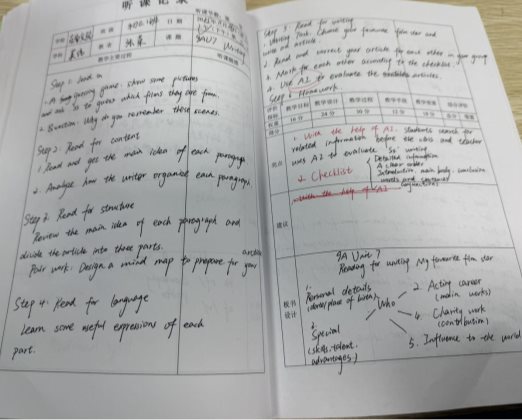 听课记录
学校
班级
日期
学科 英语
教师
课题 8AU7 Writing
教学主要过程
听课随感
Step 1: Lead in
1. A guessing game: show some pictures
and ask Ss to guess which films they are from.
2. Question: Why do you remember these scenes.
Step 2: Read for content
1. Read and get the main idea of each paragraph
2. Analyse how the writer organise each paragraph
Step 3: Read for structure
Review the main idea of each paragraph and
divide the article into three parts.
Pair work: Design a mind map to prepare for your article
Step 4: Read for language
Learn some useful expressions of each
part.
Step 5: Read for writing
1. Writing Task: Choose your favourite film star and
write an article.
2. Read and correct your article for each other in your group
3. Mark for each other according to the checklist.
4. Use AI to evaluate the articles.
Step 6: Homework
评价 教学目标 教学设计 教学过程 教学手段 教学效果 综合评价
得分
1. With the help of AI. Students search for
related information before the class and teacher
uses AI to evaluate Ss' writing
2. Checklist
Detailed information
A clear order
Introduction, main body, conclusion
words and sentences
conjunctions
with the help of AI
建议
板书设计
8A Unit 7
Reading for writing My favourite film star
1. Personal details
(date/place of birth)
Who
2. Acting career
(main works)
3. Special
(skills. talent.
advantages)
4. Charity work
(contribution)
5. Influence to the world